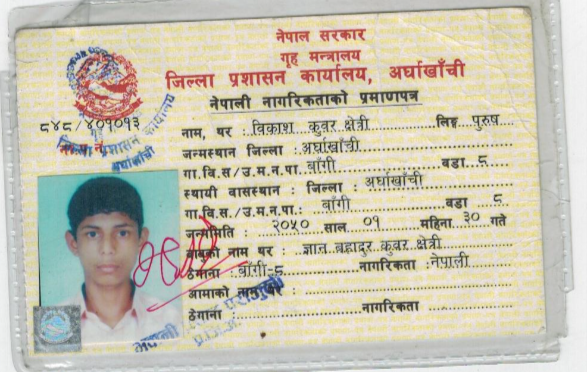 नेपाल सरकार
गृह मन्त्रालय
जिल्ला प्रशासन कार्यालय, अर्घाखाँची
नेपाली नागरिकताको प्रमाणपत्र
नाम, थर : विकाश कुवर क्षेत्री लिङ्ग पुरुष
जन्मस्थान जिल्ला : अर्घाखाँची
गा.वि.स./उ.म.न.पा. बाँगी वडा ८
स्थायी वासस्थान : जिल्ला : अर्घाखाँची
गा.वि.स./उ.म.न.पा.: बाँगी वडा ८
जन्ममिति : २०५० साल ०१ महिना ३० गते
बाबुको नाम थर : ज्ञान बहादुर कुवर क्षेत्री
ठेगाना : बाँगी-८ नागरिकता : नेपाली
आमाको
ठेगाना : नागरिकता
ना.प्र.नं.
जिल्ला प्रशासन कार्यालय
अर्घाखाँची